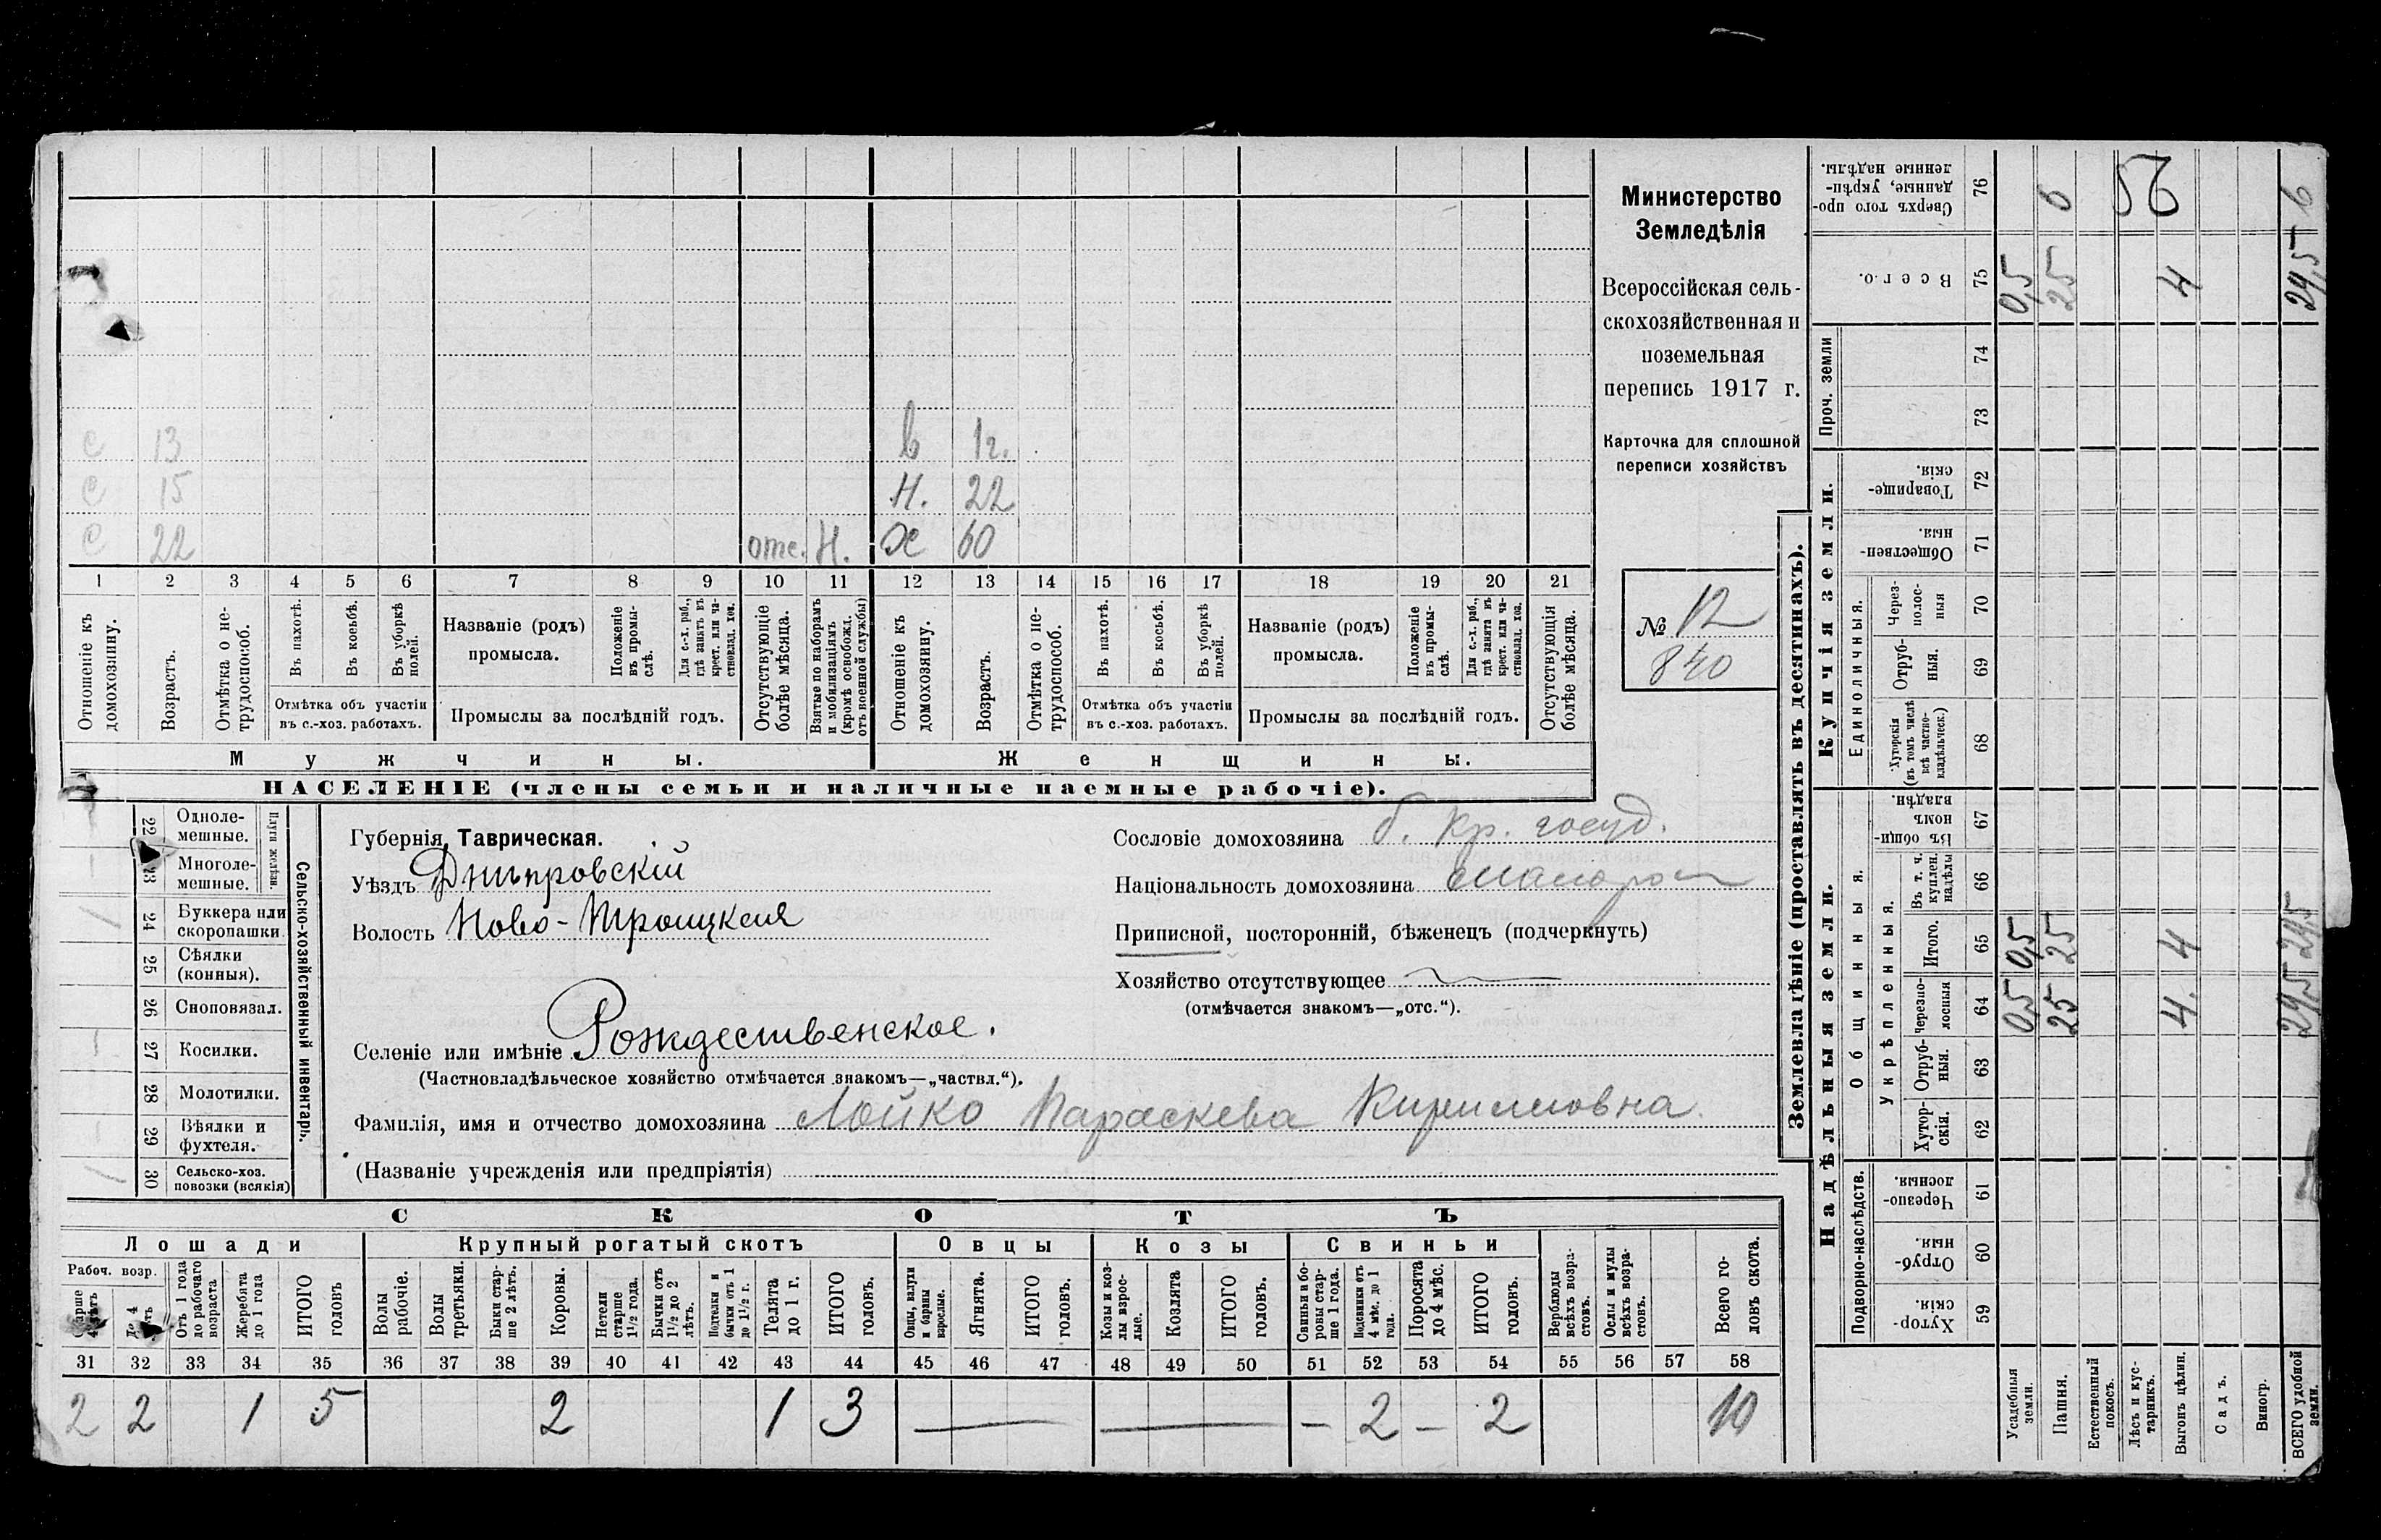 Министерство
Земледѣлія
Всероссійская сель-
скохозяйственная и
поземельная
перепись 1917 г.
Карточка для сплошной
переписи хозяйствъ
№ 12
840
с 13
с 15
с 22 отс. Н.
в 1 г.
Н. 22
Х 60
1 2 3 4 5 6 7 8 9 10 11 12 13 14 15 16 17 18 19 20 21
Отношеніе къ домохозяину.
Возрастъ.
Отмѣтка о не-трудоспособ.
Въ пахотѣ.
Въ косьбѣ.
Въ уборкѣ полей.
Отмѣтка объ участіи
въ с.-хоз. работахъ.
Названіе (родъ)
промысла.
Положеніе въ промы-слѣ.
Для с.-х. раб., гдѣ занятъ въ крест. или ча-стновлад. хоз.
Промыслы за послѣдній годъ.
Отсутствующіе болѣе мѣсяца.
Взятые по наборамъ и мобилизаціямъ (кромѣ освобожд. отъ военной службы)
Отношеніе къ домохозяину.
Возрастъ.
Отмѣтка о не-трудоспособ.
Въ пахотѣ.
Въ косьбѣ.
Въ уборкѣ полей.
Отмѣтка объ участіи
въ с.-хоз. работахъ.
Названіе (родъ)
промысла.
Положеніе въ промы-слѣ.
Для с.-х. раб., гдѣ занята въ крест. или ча-стновлад. хоз.
Промыслы за послѣдній годъ.
Отсутствующія болѣе мѣсяца.
Мужчины.
Женщины.
НАСЕЛЕНІЕ (члены семьи и наличные наемные рабочіе).
Сельско-хозяйственный инвентарь.
Плуги желѣзн.
22 Одноле-мешные.
23 Многоле-мешные.
24 Буккера или скоропашки
25 Сѣялки (конныя).
26 Сноповязал.
27 Косилки.
28 Молотилки.
29 Вѣялки и фухтеля.
30 Сельско-хоз. повозки (всякія)
Губернія Таврическая.
Уѣздъ Днѣпровскій
Волость Ново-Троицкая
Селеніе или имѣніе Рождественское.
(Частновладѣльческое хозяйство отмѣчается знакомъ—„частвл.“).
Сословіе домохозяина б. кр. госуд.
Національность домохозяина малорос
Приписной, посторонній, бѣженецъ (подчеркнуть)
Хозяйство отсутствующее
(отмѣчается знакомъ—„отс.“).
Фамилія, имя и отчество домохозяина Лойко Параскева Кирилловна.
(Названіе учрежденія или предпріятія)
СКОТЪ
Лошади
Крупный рогатый скотъ
Овцы
Козы
Свиньи
Рабоч. возр.
Старше 4 лѣтъ
До 4 лѣтъ
Отъ 1 года до рабочаго возраста
Жеребята до 1 года
ИТОГО головъ
Волы рабочіе.
Волы третьяки.
Быки стар-ше 2 лѣтъ.
Коровы.
Нетели старше 1½ года.
Бычки отъ 1½ до 2 лѣтъ.
Подтелки и бычки отъ 1 до 1½ г.
Телята до 1 г.
ИТОГО головъ.
Овцы, валухи и бараны взрослые.
Ягнята.
ИТОГО головъ.
Козы и коз-лы взрос-лые.
Козлята
ИТОГО головъ.
Свиньи и бо-ровы стар-ше 1 года.
Подсвинки отъ 4 мѣс. до 1 года.
Поросята до 4 мѣс.
ИТОГО головъ.
Верблюды всѣхъ возра-стовъ.
Ослы и мулы всѣхъ возра-стовъ.
Всего го-ловъ скота.
31 32 33 34 35 36 37 38 39 40 41 42 43 44 45 46 47 48 49 50 51 52 53 54 55 56 57 58
2 2 1 5 2 1 3 — — – 2 – 2 10
Землевладѣніе (проставлять въ десятинахъ).
Надѣльныя земли.
Купчія земли.
Проч. земли
Подворно-наслѣдств.
Общинныя.
Укрѣпленныя.
Единоличныя.
Хутор-скія. 59
Отруб-ныя. 60
Черезпо-лосныя. 61
Хутор-скія. 62
Отруб-ныя. 63
Черезпо-лосныя 64
Итого. 65
Въ т. ч. куплен. надѣлы 66
Въ общи-номъ владѣн. 67
Хуторскія (въ томъ числѣ всѣ частно-владѣльческ.) 68
Отруб-ныя. 69
Через-полос-ныя 70
Обществен-ныя. 71
Товарище-скія. 72
73
74
Всего. 75
Сверхъ того про-данные, укрѣп-ленные надѣлы. 76
Усадебныя земли. 0,5 0,5 0,5
Пашня. 25 25 25 6
Естественный покосъ.
Лѣсъ и кус-тарникъ.
Выгонъ цѣлин. 4. 4 4
Садъ.
Виногр.
ВСЕГО удобной земли. 29,5 29,5 29,5 6
56